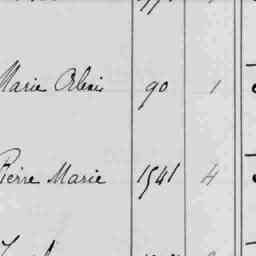 Marie Alexis 90 1
Pierre Marie 1541 4